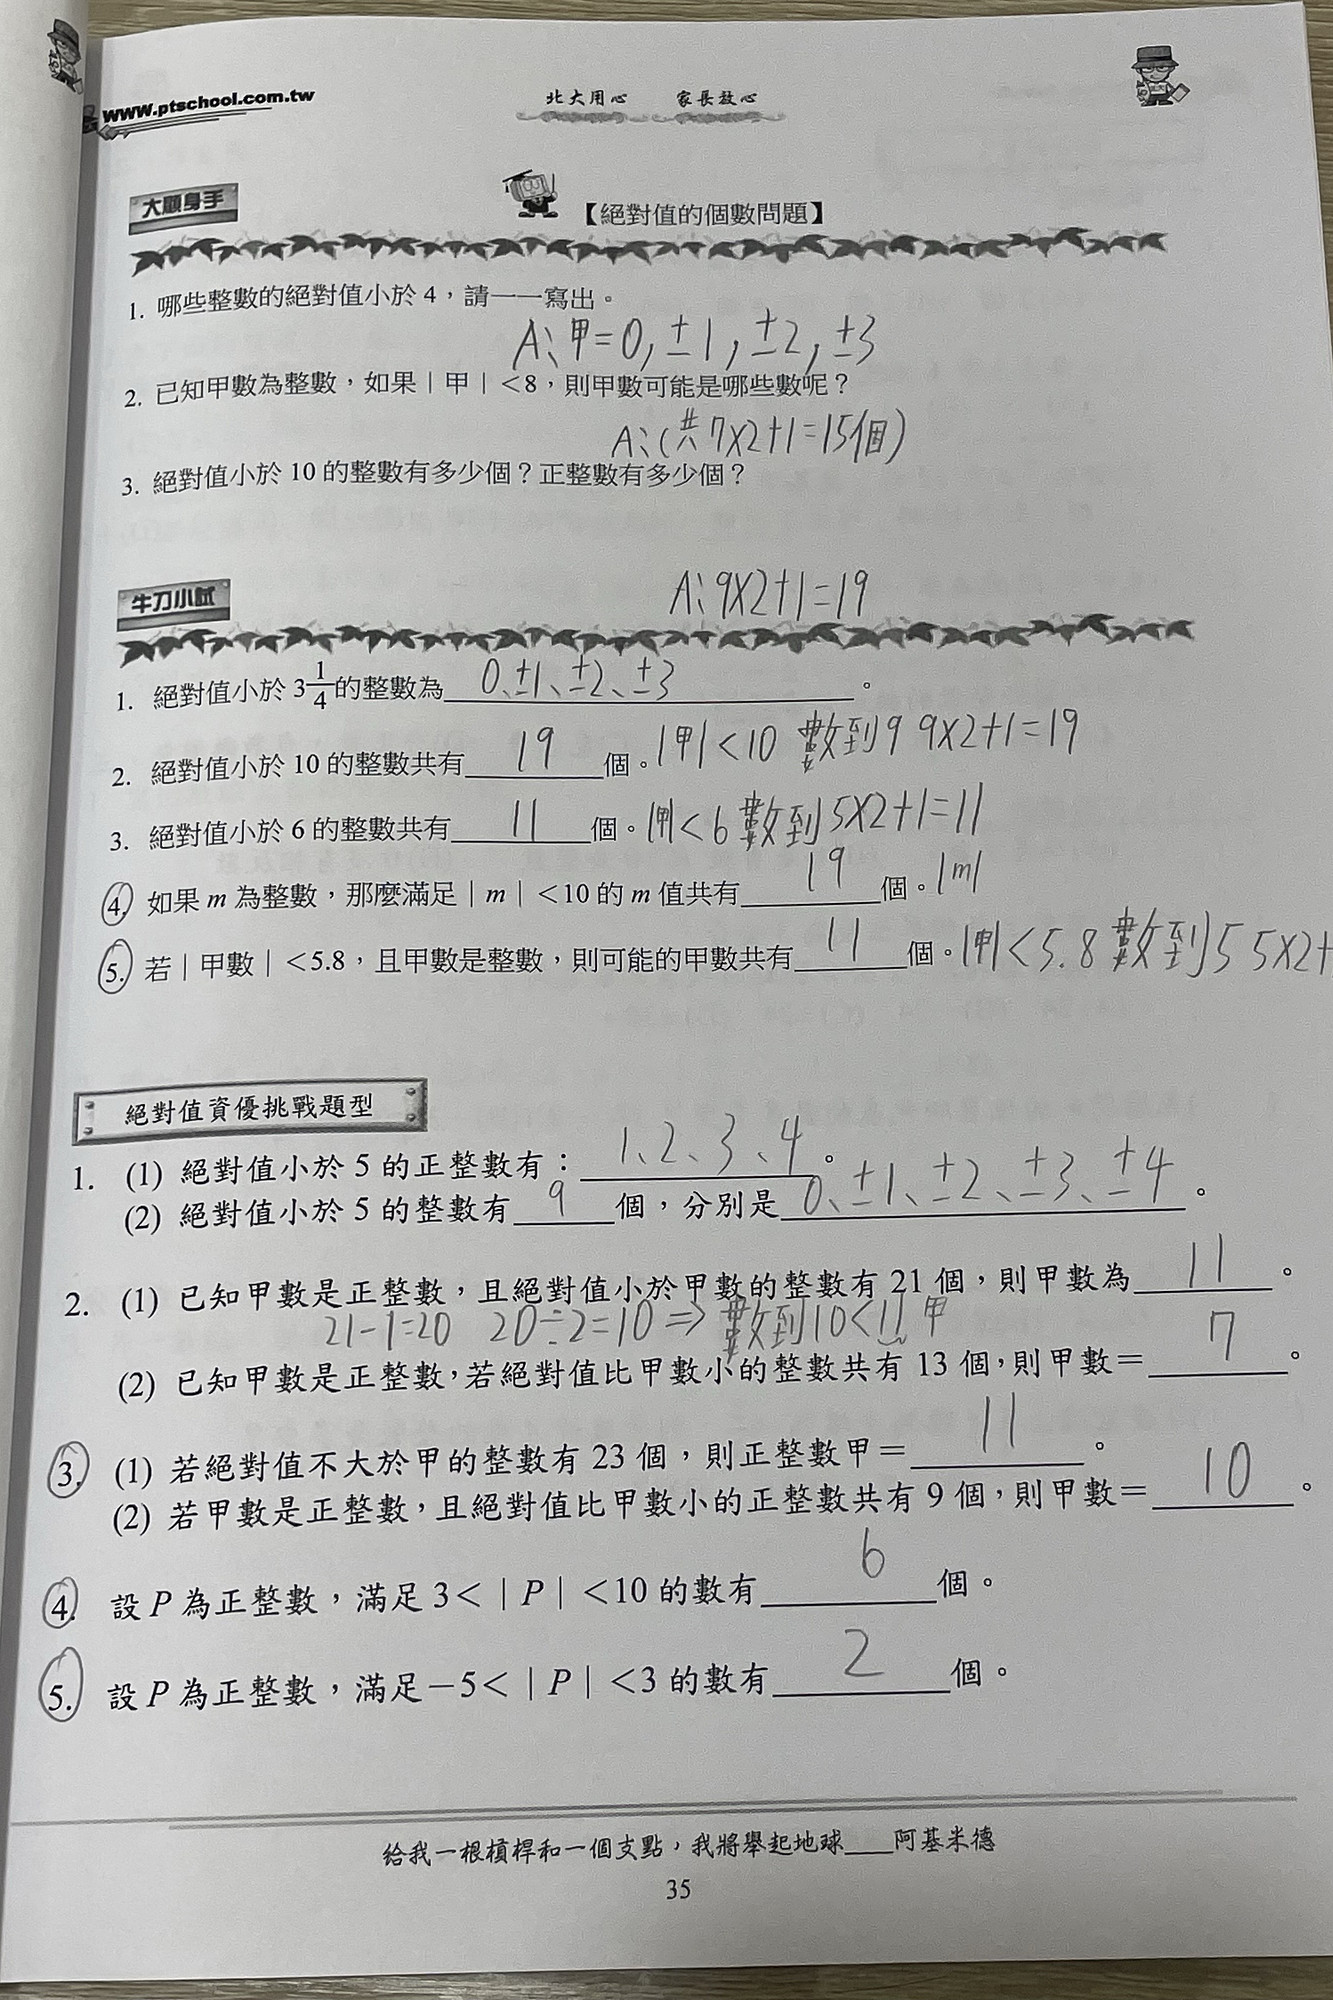 www.ptschool.com.tw
北大用心 家長放心
大顯身手
【絕對值的個數問題】
1. 哪些整數的絕對值小於 4，請一一寫出。
A: 甲=0, ±1, ±2, ±3
2. 已知甲數為整數，如果｜甲｜＜8，則甲數可能是哪些數呢？
A:(共7×2+1=15個)
3. 絕對值小於 10 的整數有多少個？正整數有多少個？
A: 9×2+1=19
牛刀小試
1. 絕對值小於 3 1/4 的整數為 0、±1、±2、±3 。
2. 絕對值小於 10 的整數共有 19 個。|甲|<10 數到9 9×2+1=19
3. 絕對值小於 6 的整數共有 11 個。|甲|<6 數到5×2+1=11
4. 如果 m 為整數，那麼滿足｜m｜＜10 的 m 值共有 19 個。|m|
5. 若｜甲數｜＜5.8，且甲數是整數，則可能的甲數共有 11 個。|甲|<5.8 數到5 5×2+
絕對值資優挑戰題型
1. (1) 絕對值小於 5 的正整數有： 1、2、3、4 。
(2) 絕對值小於 5 的整數有 9 個，分別是 0、±1、±2、±3、±4 。
2. (1) 已知甲數是正整數，且絕對值小於甲數的整數有 21 個，則甲數為 11 。
21-1=20 20÷2=10⇒數到10<11 甲
(2) 已知甲數是正整數，若絕對值比甲數小的整數共有 13 個，則甲數＝ 7 。
3. (1) 若絕對值不大於甲的整數有 23 個，則正整數甲＝ 11 。
(2) 若甲數是正整數，且絕對值比甲數小的正整數共有 9 個，則甲數＝ 10 。
4. 設 P 為正整數，滿足 3＜｜P｜＜10 的數有 6 個。
5. 設 P 為正整數，滿足－5＜｜P｜＜3 的數有 2 個。
給我一根槓桿和一個支點，我將舉起地球____阿基米德
35